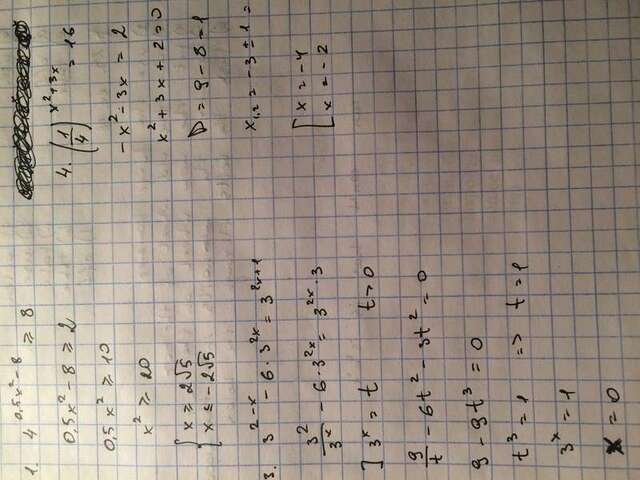 1. 4^{0,5x²-8} ≥ 8
0,5x² - 8 ≥ 2
0,5x² ≥ 10
x² ≥ 20
{ x ≥ 2√5
x ≤ -2√5
3. 3^{2-x} - 6 · 3^{2x} = 3^{2x+1}
3²/3^x - 6 · 3^{2x} = 3^{2x} · 3
] 3^x = t t > 0
9/t - 6t² - 3t² = 0
9 - 9t³ = 0
t³ = 1 => t = 1
3^x = 1
x = 0
4. (1/4)^{x²+3x} = 16
-x² - 3x = 2
x² + 3x + 2 = 0
D = 9 - 8 = 1
x₁,₂ = -3 ± 1 =
[ x = -4
x = -2